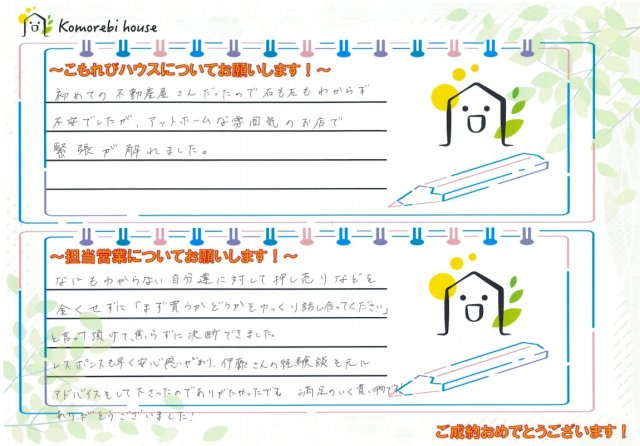 Komorebi house
～こもれびハウスについてお願いします！～
初めての不動産屋さんだったので右も左もわからず
不安でしたが、アットホームな雰囲気のお店で
緊張が解れました。
～担当営業についてお願いします！～
なにもわからない自分達に対して押し売りなどを
全くせずに「まず買うかどうかをゆっくり話し合ってください」
と言って頂けて、焦らずに決断できました。
レスポンスも早く安心感があり、伊藤さんの経験談を元に
アドバイスをして下さったのでありがたかったです 満足のいく買い物でした
ありがとうございました！
ご成約おめでとうございます！